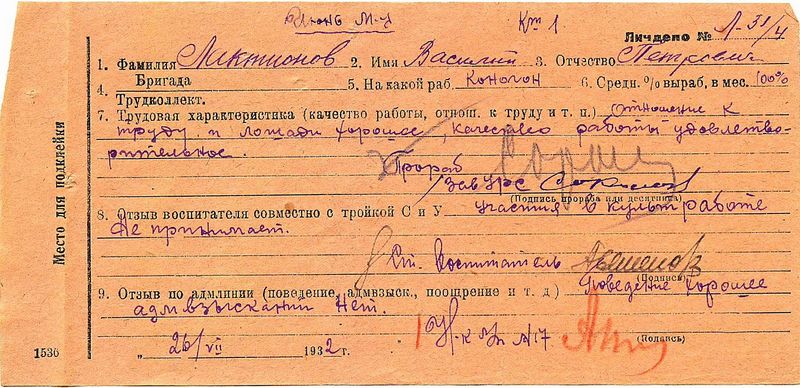 Июнь м-ц
Кт 1
Личдело № Л-31/4
1. Фамилия Лактионов 2. Имя Василий 3. Отчество Петрович
4. Бригада Трудколлект. 5. На какой раб. Коногон 6. Средн. % выраб. в мес. 100%
7. Трудовая характеристика (качество работы, отнош. к труду и т. п.) Отношение к
труду и лошади хорошее, качество работы удовлетво-
рительное.
Прораб
Зав УРС
(Подпись прораба или десятника)
8. Отзыв воспитателя совместно с тройкой С и У участия в культработе
Не принимает.
Ст. Воспитатель
(Подпись)
9. Отзыв по адмлинии (поведение, адмвзыск., поощрение и т. д) Поведение хорошее
адмвзысканий нет.
„ 26/VII 1932 г.
Н-к №17
(Подпись)
Место для подклейки
1536